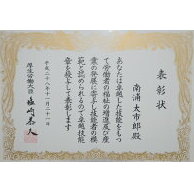 表彰状
南浦太市郎殿
あなたは卓越した技能をもつ
て労働者の福祉の増進及び産
業の発展に寄与し技能者の模
範と認められるので卓越技能
章を授与して表彰します
平成二十八年十一月二十一日
厚生労働大臣 塩崎恭久